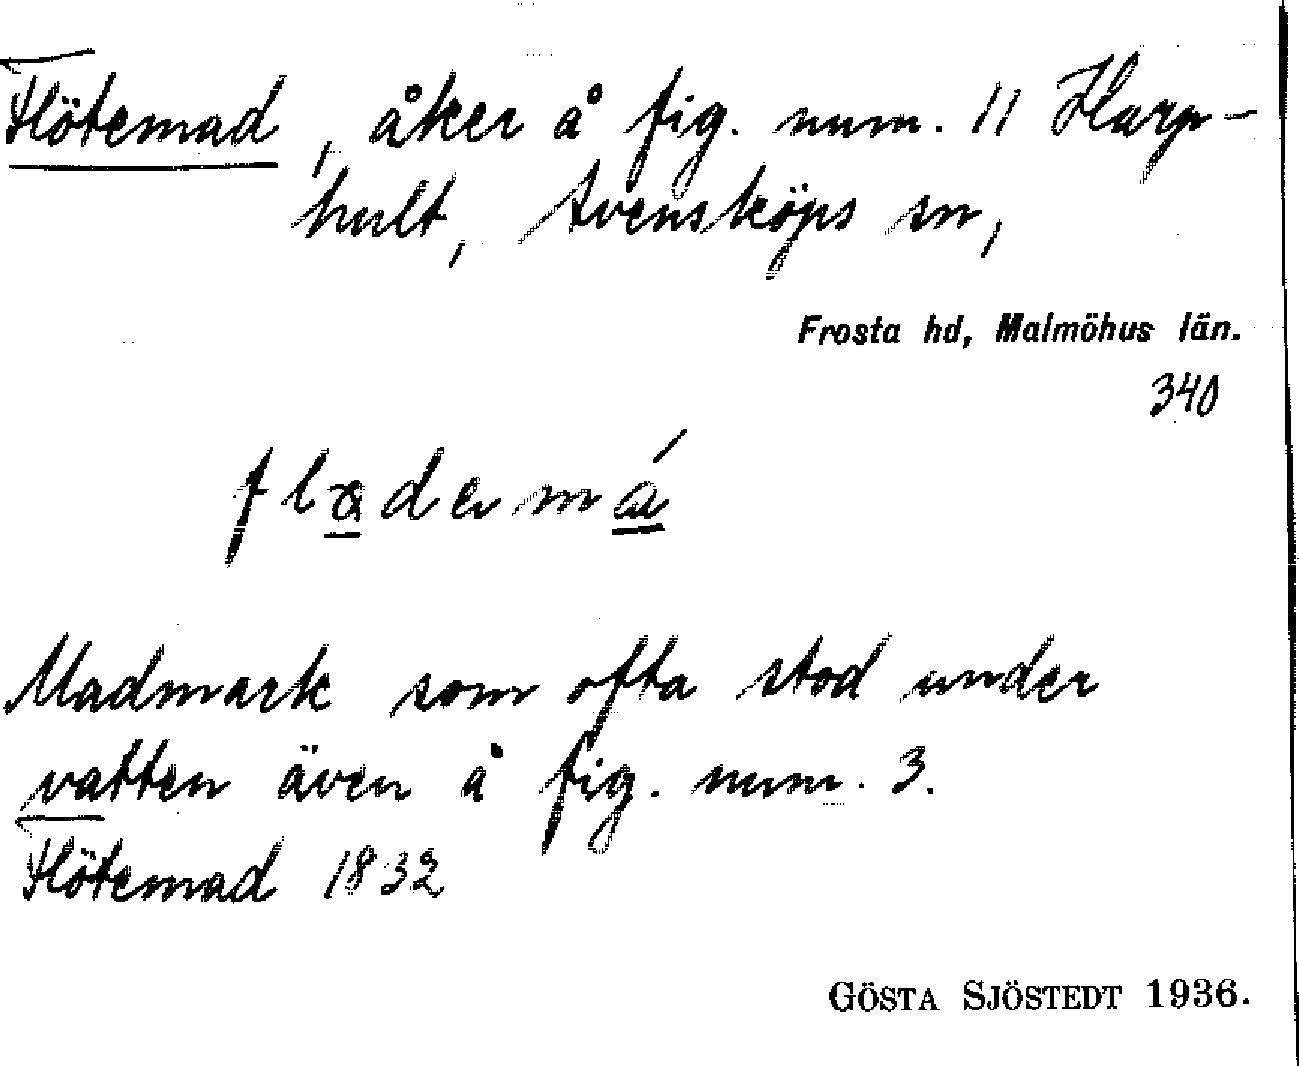 Flötemad, åker å fig. num. 11 Harp-
hult, Svensköps sn,
Frosta hd, Malmöhus län.
340
Madmark som ofta stod under
vatten även å fig. num. 3.
Flötemad 1832
GÖSTA SJÖSTEDT 1936.